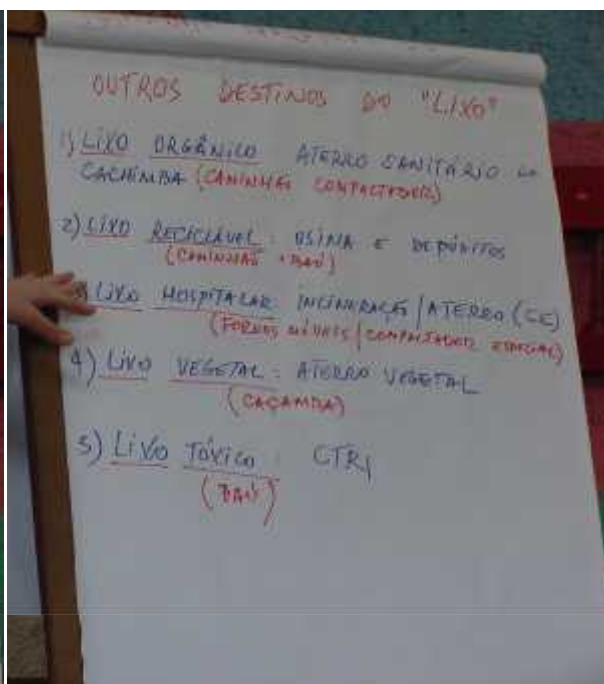 OUTROS DESTINOS DO "LIXO"
1) LIXO ORGÂNICO ATERRO SANITÁRIO
CACHIMBA (CAMINHÃO COMPACTADOR)
2) LIXO RECICLÁVEL: USINA E DEPÓSITOS
(CAMINHÃO BAÚ)
LIXO HOSPITALAR: INCINERAÇÃO/ATERRO (CE)
(FORNOS MÓVEIS/COMPACTADOR ESPECIAL)
4) LIXO VEGETAL: ATERRO VEGETAL
(CAÇAMBA)
5) LIXO TÓXICO: CTRI
(BAÚ)